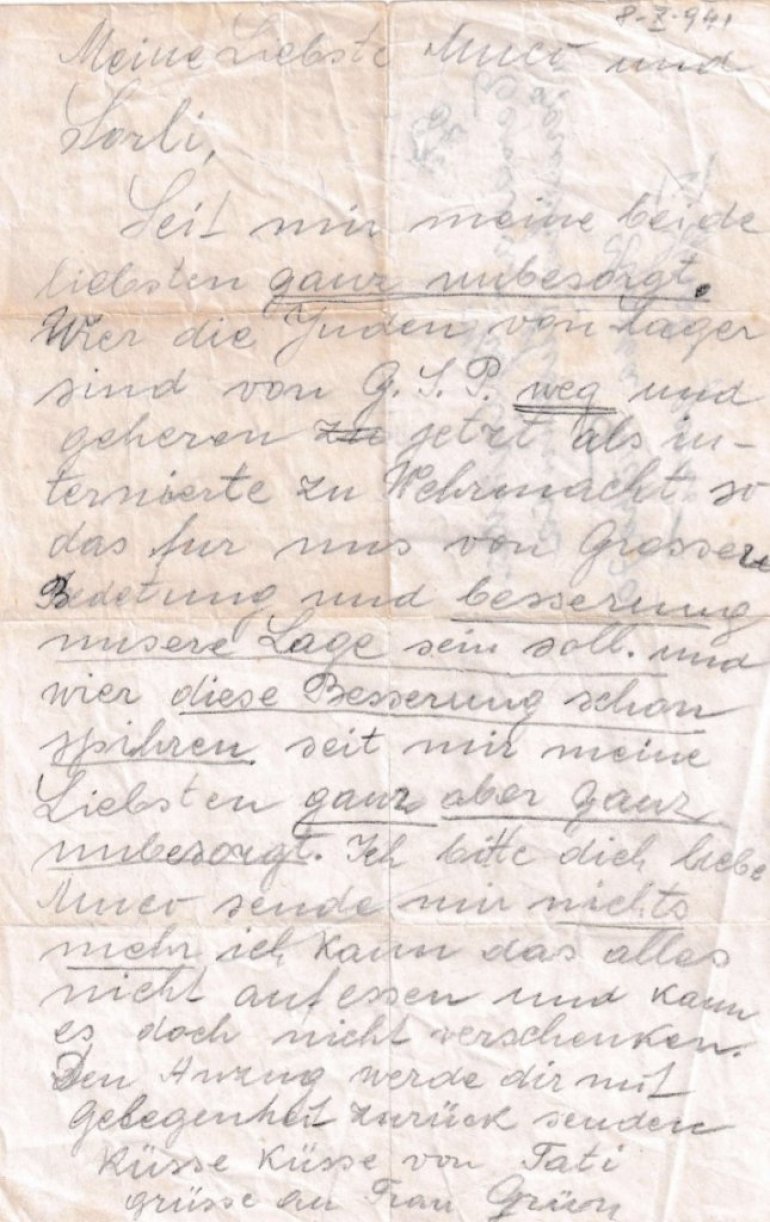 8-X-941
Meine Liebste Muco und
Lorli,
Seit mir meine beide
liebsten ganz unbesorgt.
Wier die Juden von Lager
sind von G.S.P. weg und
geheren zu jetzt als in-
ternierte zu Wehrmacht so
das fur uns von Grossere
Bedetung und besserung
unsere Lage sein soll. und
wier diese Besserung schon
spihren seit mir meine
Liebsten ganz aber ganz
unbesorgt. Ich bitte dich liebe
Muco sende mir nichts
mehr ich kann das alles
nicht auf essen und kann
es doch nicht verschenken.
Den Anzug werde dir mit
gelegenheit zurück senden
Küsse Küsse von Tati
grüsse an Frau Grün